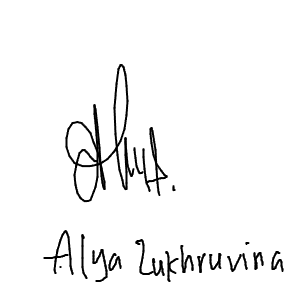 Alya Zukhruvina